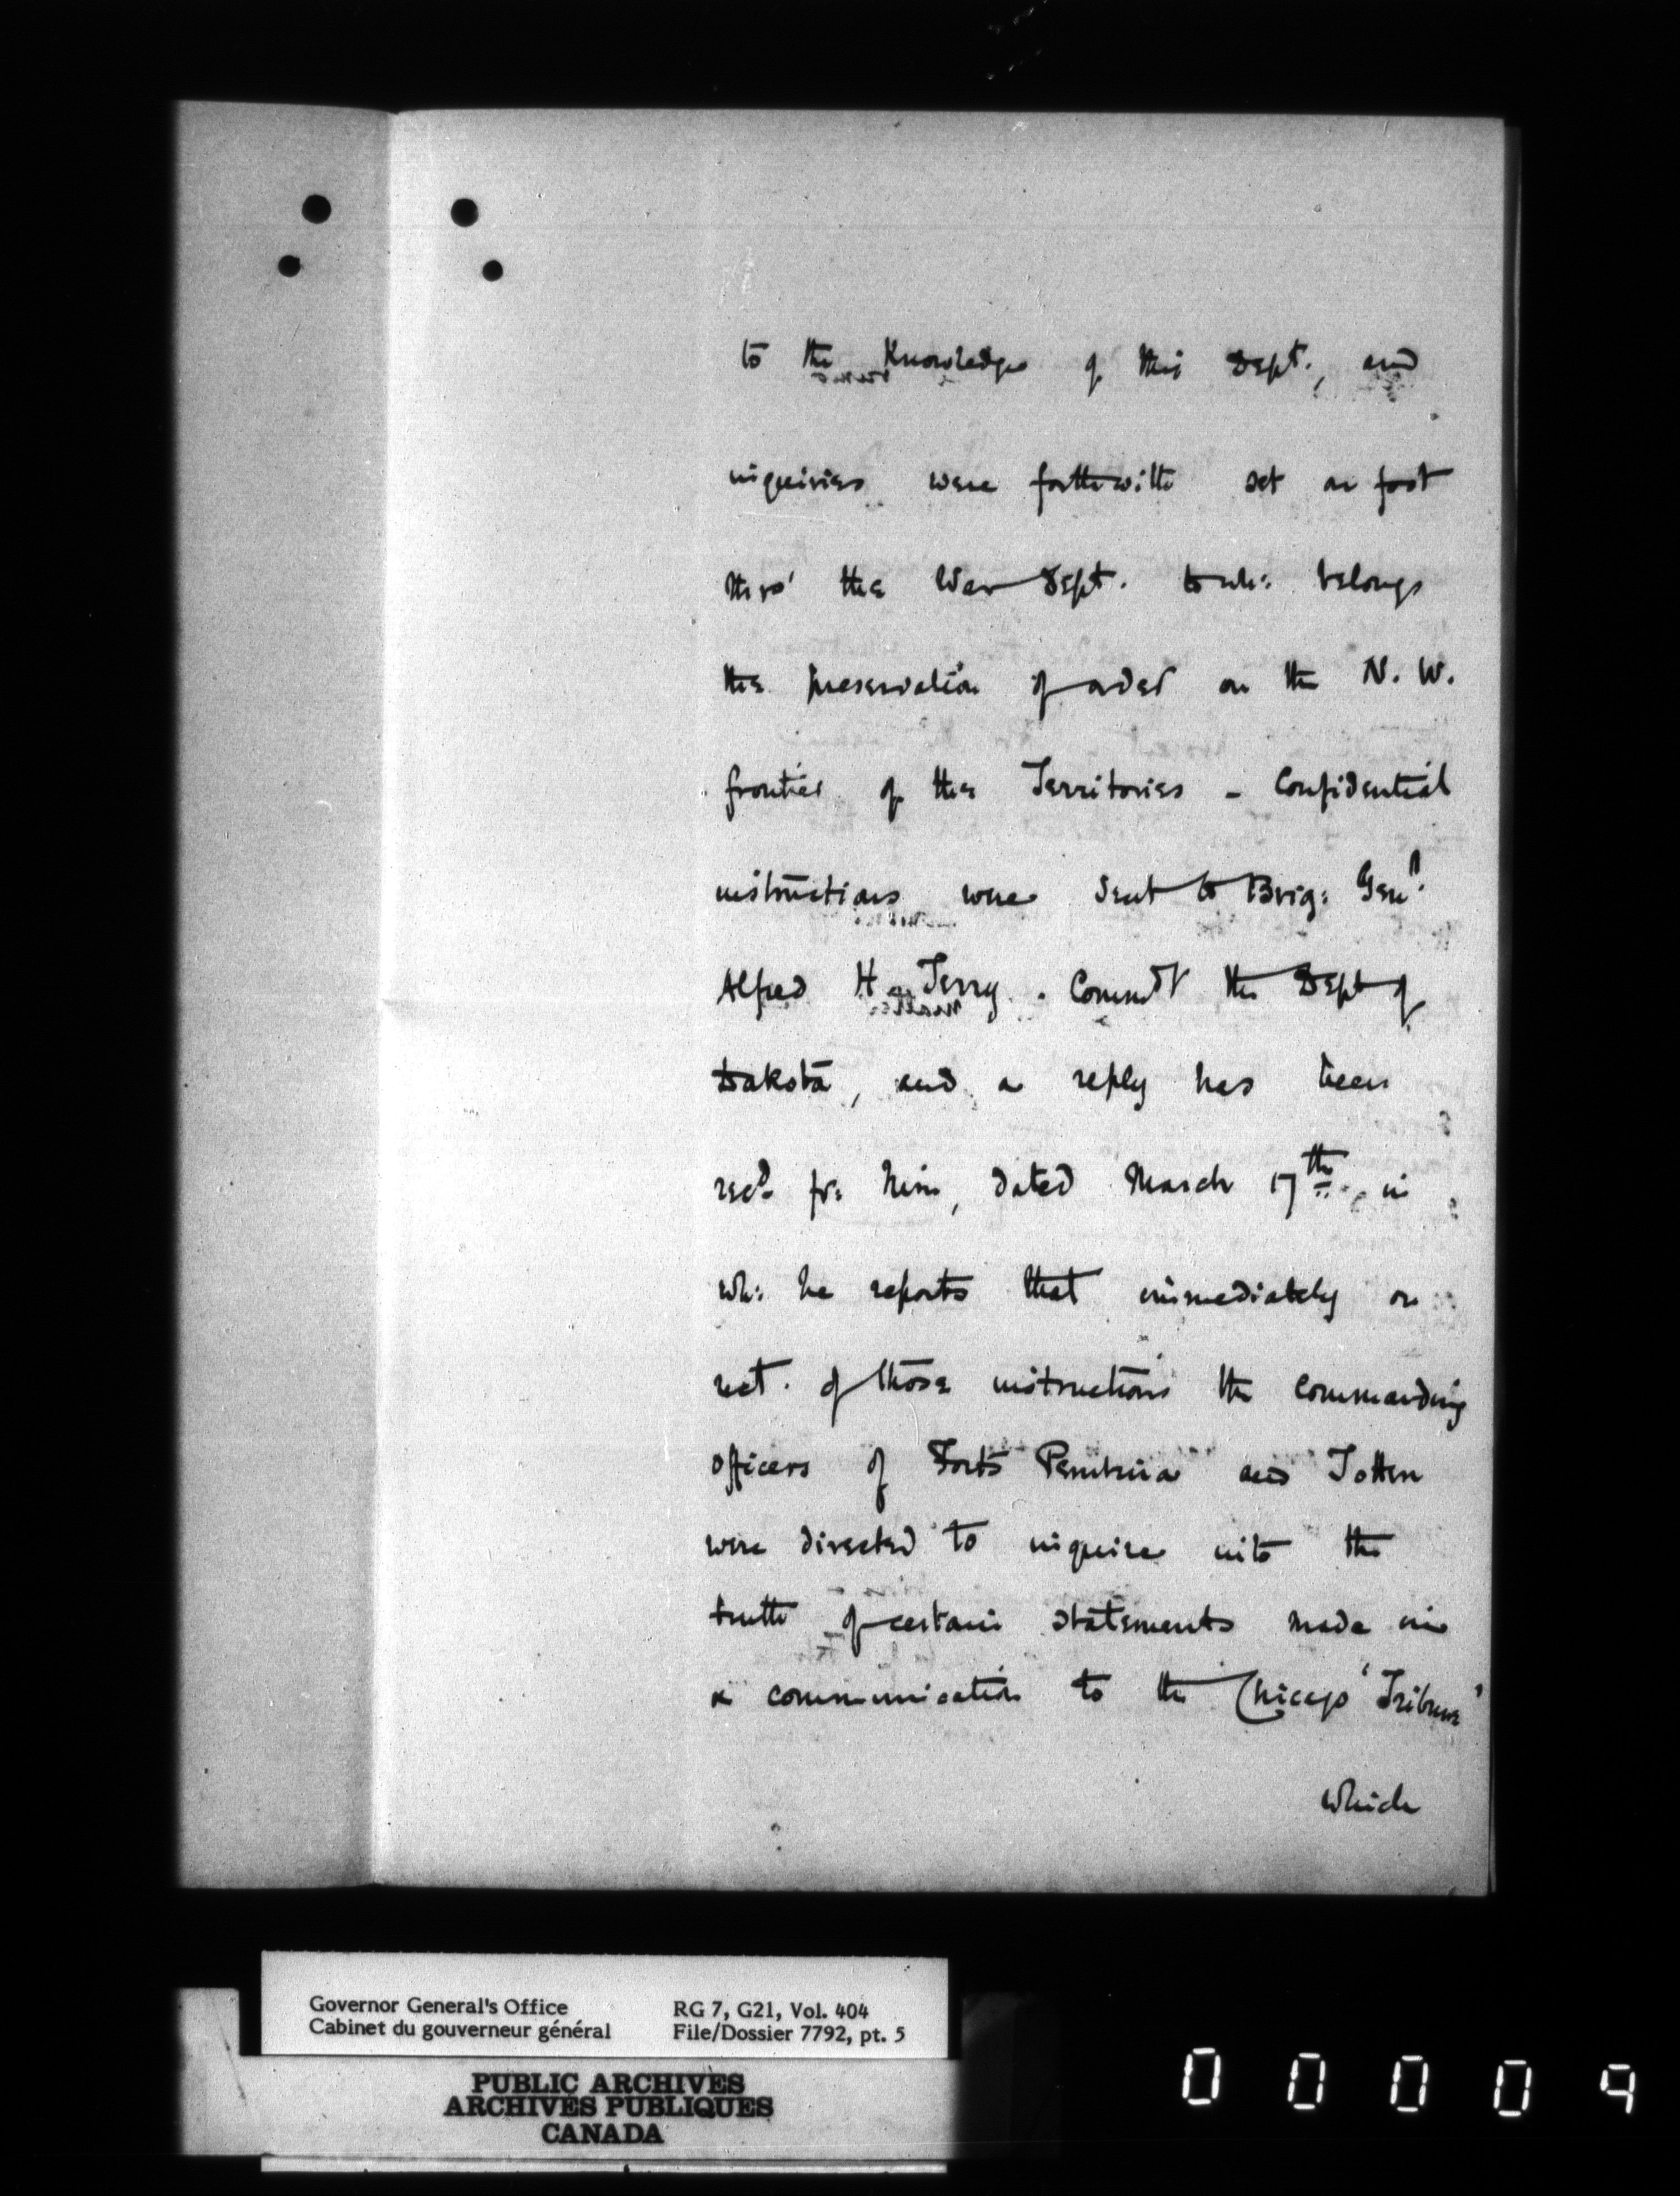 to the Knowledge of this Dept., and
inquiries were forthwith set on foot
thro' the War Dept. to wh: belongs
the preservation of order on the N. W.
frontier of the Territories - Confidential
instructions were sent to Brig: Genl.
Alfred H. Terry. Commdt the Dept of
Dakota, and a reply has been
recd. fr: him, dated March 17th. in
wh: he reports that immediately on
rect. of those instructions the commanding
officers of Forts Pembina and Totten
were directed to inquire into the
truth of certain statements made in
a communication to the Chicago 'Tribune'
which
Governor General's Office
Cabinet du gouverneur général
RG 7, G21, Vol. 404
File/Dossier 7792, pt. 5
PUBLIC ARCHIVES
ARCHIVES PUBLIQUES
CANADA
0 0 0 0 9